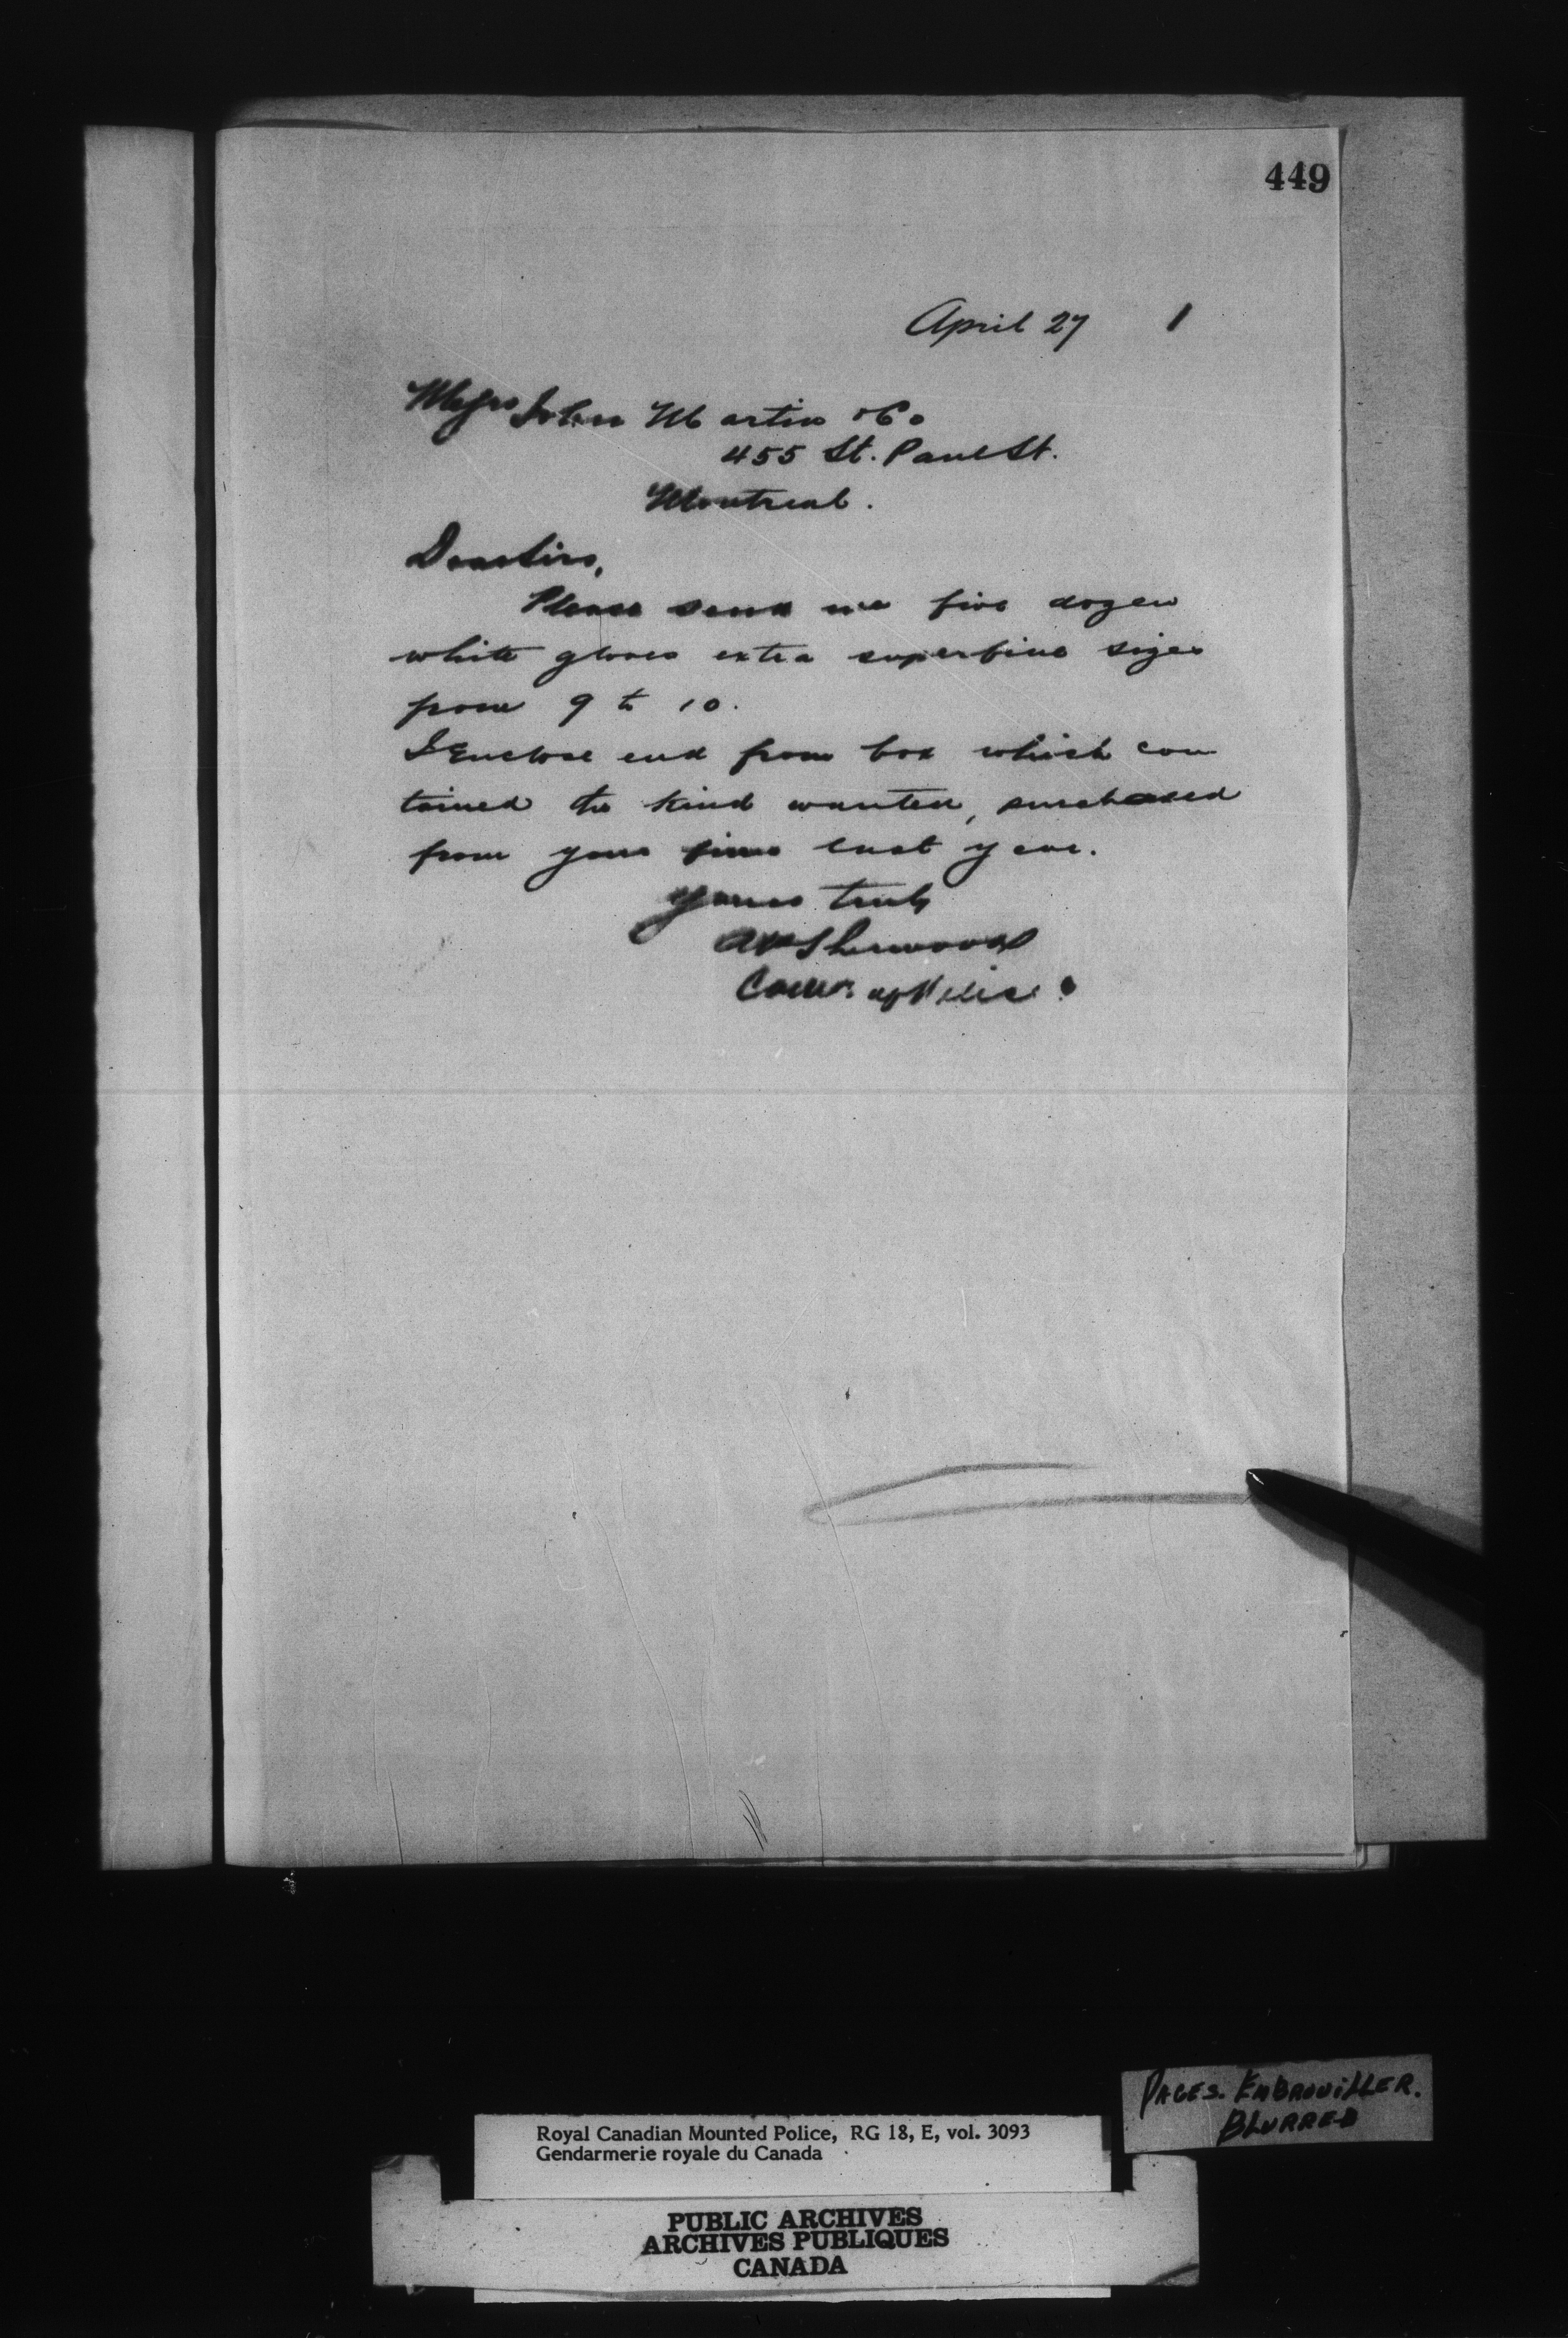 449
April 27 1
Messrs John Martin & Co
455 St. Paul St.
Montreal.
Dear Sirs,
Please send me five dozen
white gloves extra superfine sizes
from 9 to 10.
I Enclose end from box which con
tained the kind wanted, purchased
from your firm last year.
Yours truly
AP Sherwood
Comr. of Police.
PAGES. EMBROUILLER.
BLURRED
Royal Canadian Mounted Police, RG 18, E, vol. 3093
Gendarmerie royale du Canada
PUBLIC ARCHIVES
ARCHIVES PUBLIQUES
CANADA